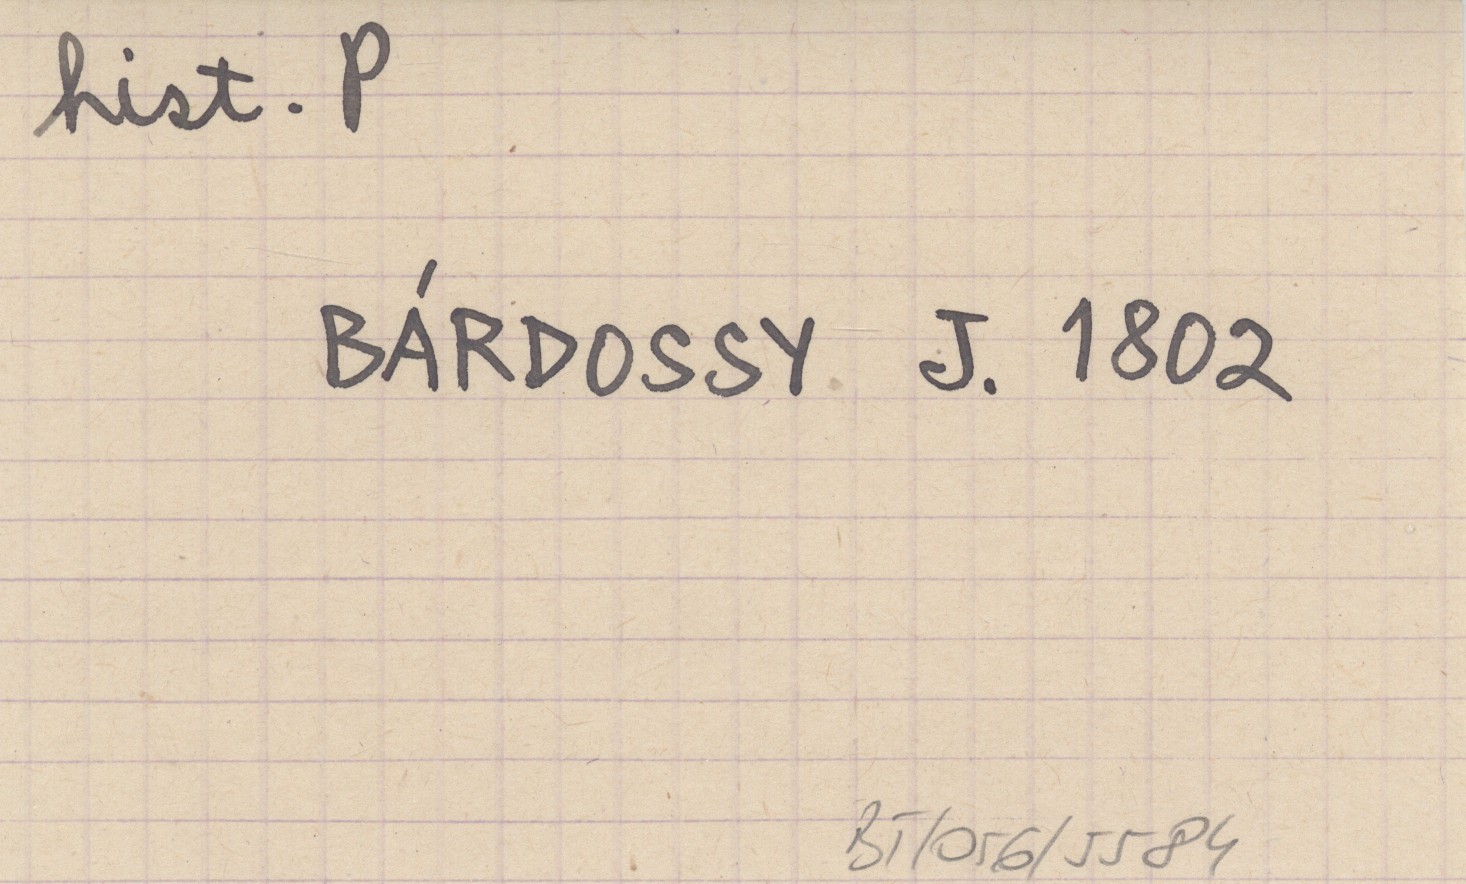 hist. P
BÁRDOSSY J. 1802
BT/056/5584